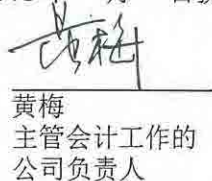 黄梅
黄梅
主管会计工作的
公司负责人